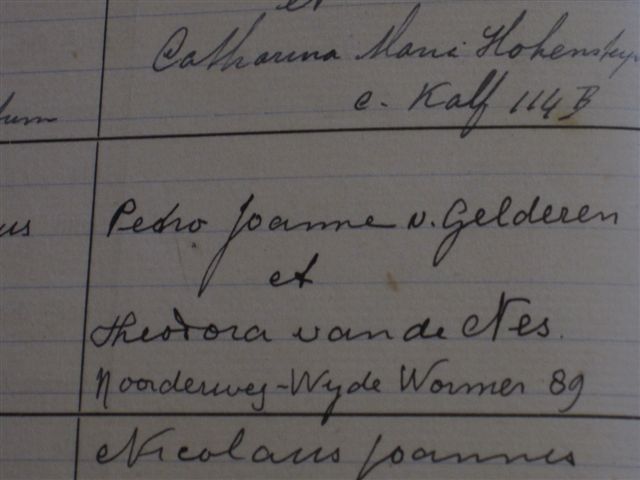 et
Catharina Maria Hokensteyn
c. Kalf 114 B
um
us
Petro Joanne v. Gelderen
et
Theodora van de Nes.
Noorderweg-Wyde Wormer 89
Nicolaus Joannes